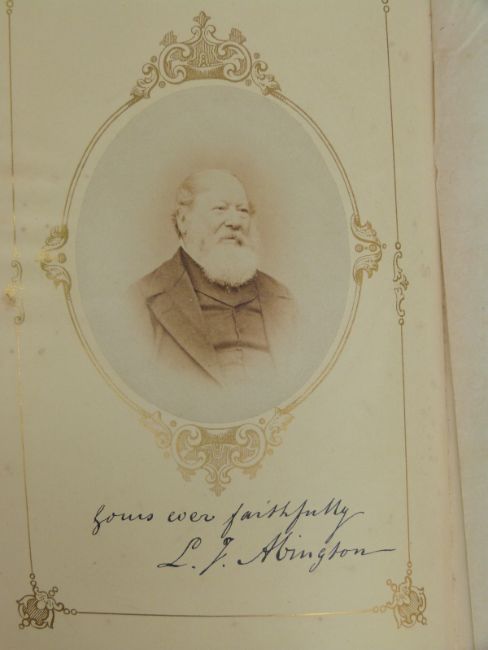 yours ever faithfully
L. J. Abington